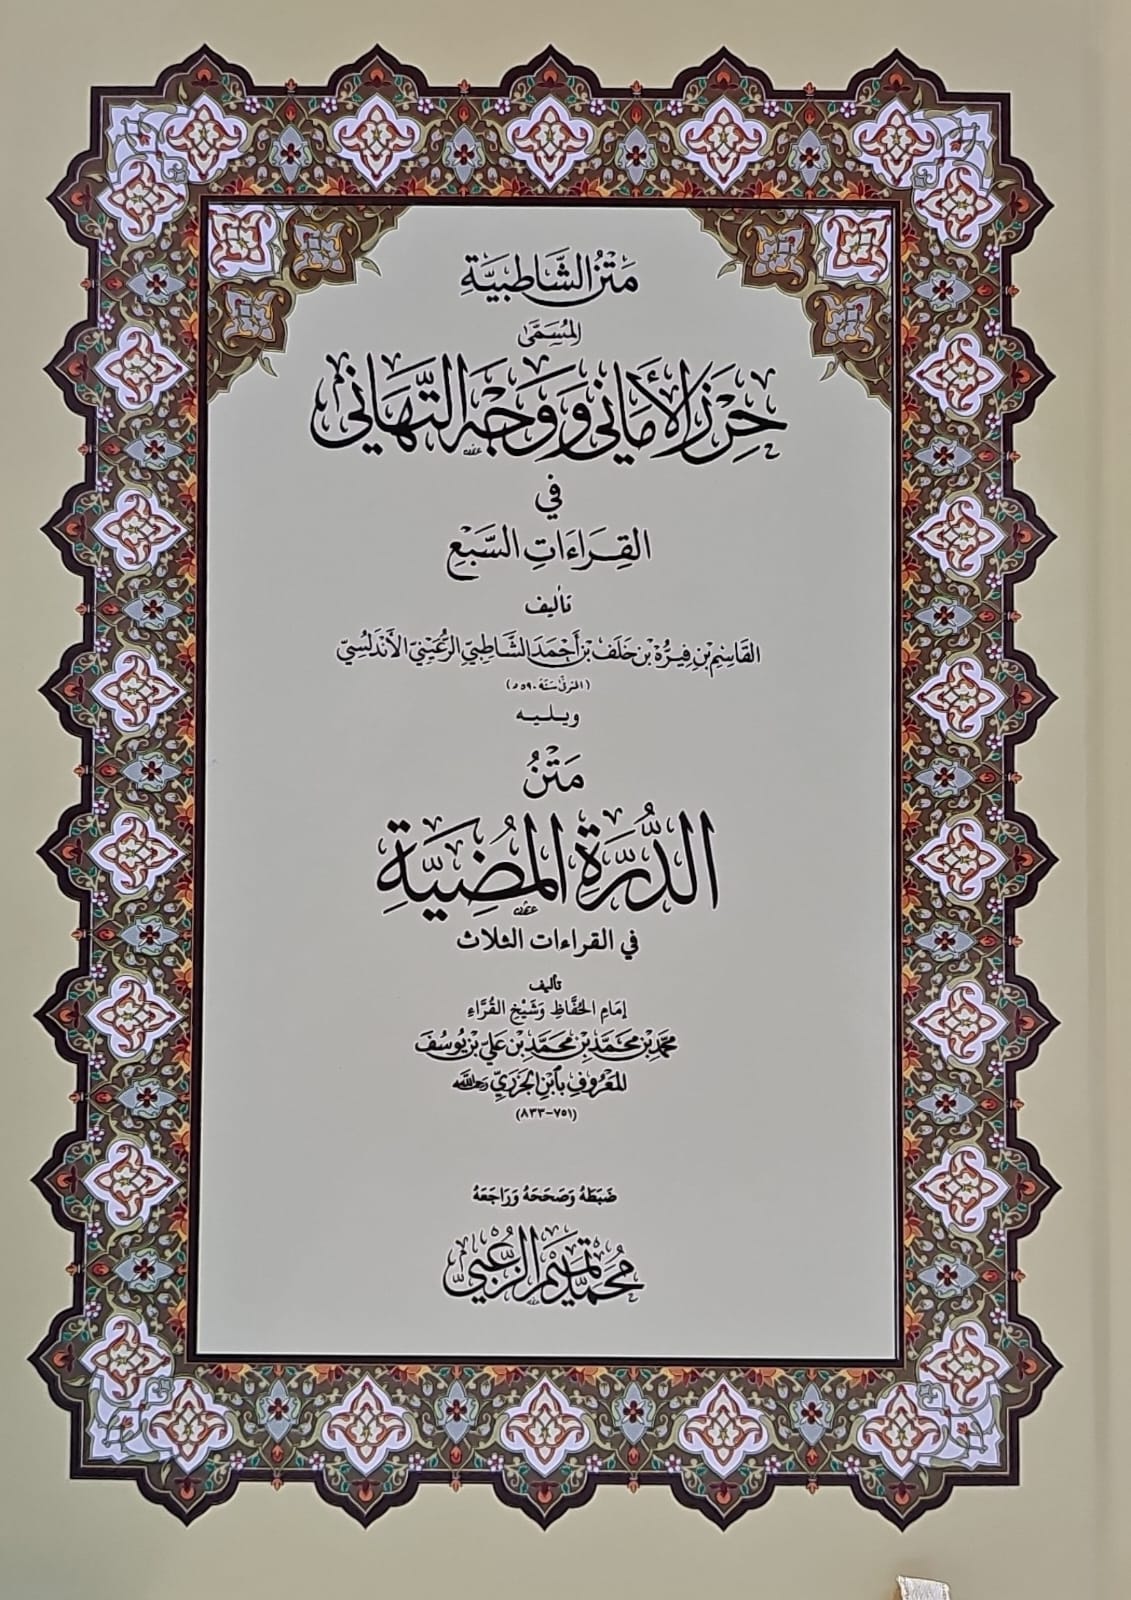 مَتْنُ الشَّاطِبِيَّةِ
المُسَمَّىٰ
حِرْزَ الأَمَانِي وَوَجْهَ التَّهَانِي
فِي
القِرَاءَاتِ السَّبْعِ
تأليف
القَاسِمِ بْنِ فِيرُّهْ بْنِ خَلَفِ بْنِ أَحْمَدَ الشَّاطِبِيِّ الرُّعَيْنِيِّ الأَنْدَلُسِيِّ
(المتوفّى سَنَة ٥٩٠هـ)
ويليه
مَتْنُ
الدُّرَّةِ المُضِيَّةِ
في القراءات الثلاث
تأليف
إمَامِ الحُفَّاظِ وَشَيْخِ القُرَّاءِ
مُحَمَّدِ بْنِ مُحَمَّدِ بْنِ مُحَمَّدِ بْنِ عَلِيِّ بْنِ يُوسُفَ
المَعْرُوفِ بِٱبْنِ الجَزَرِيِّ رحمه الله
(٧٥١-٨٣٣)
ضَبَطَهُ وَصَحَحَهُ وَرَاجَعَهُ
مُحَمَّد تَمِيم الزُّعْبِيّ